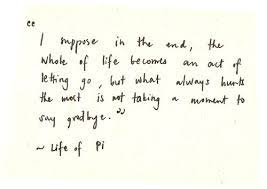 “
I suppose in the end, the
whole of life becomes an act of
letting go, but what always hurts
the most is not taking a moment to
say goodbye.”
~ Life of Pi